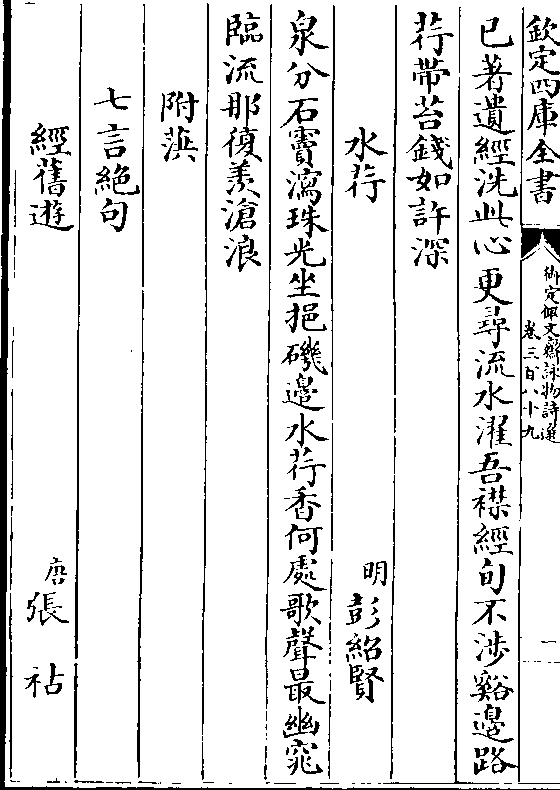 欽定四庫全書
御定佩文齋詠物詩選
卷三百八十九
一
已著遺經洗此心更尋流水濯吾襟經旬不涉谿邊路
荇帶苔錢如許深
水荇
明彭紹賢
泉分石竇瀉珠光坐挹磯邊水荇香何處歌聲最幽窕
臨流那復羨滄浪
附蘋
七言絕句
經舊遊
唐張祜